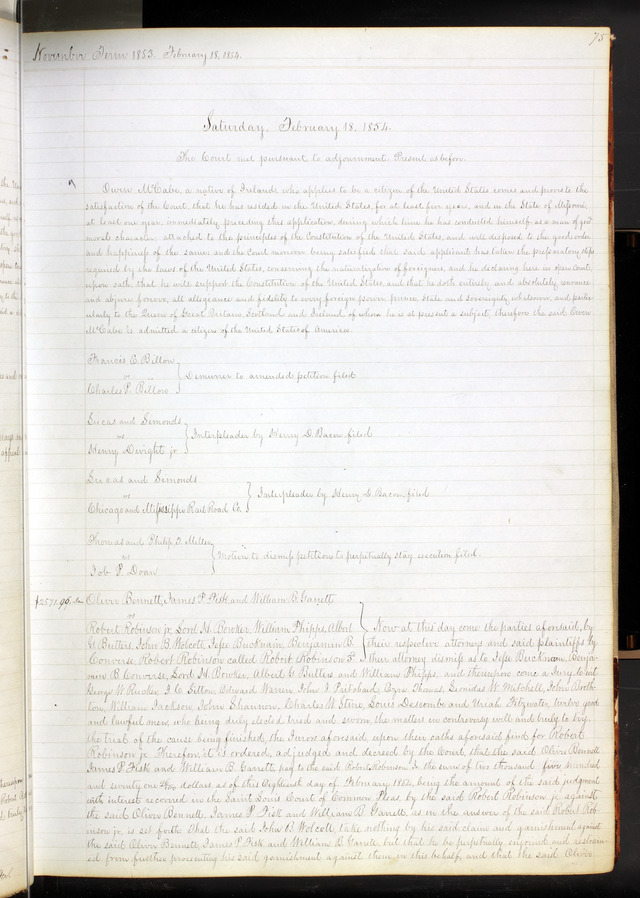 75
November Term 1853. February 18, 1854.
Saturday, February 18. 1854.
The Court met pursuant to adjournment. Present as before.
Owen McCabe, a native of Ireland, who applies to be a citizen of the United States comes and proves to the
satisfaction of the Court that he has resided in the United States, for at least five years, and in the State of Missouri,
at least one year, immediately preceding this application, during which time he has conducted himself as a man of good
moral character, attached to the principles of the Constitution of the United States, and well disposed to the good order
and happiness of the same: and the Court moreover being satisfied that said applicant has taken the preparatory steps
required by the laws of the United States, concerning the naturalization of foreigners, and he declaring here in open Court,
upon oath that he will support the Constitution of the United States, and that he doth entirely and absolutely renounce
and abjure forever, all allegiance and fidelity to every foreign power, prince, state and sovereignty whatsoever, and particu-
larly to the Queen of Great Britain, Scotland and Ireland of whom he is at present a subject, therefore the said Owen
McCabe is admitted a citizen of the United States of America.
Francis E. Billon
vs
Charles F. Billon
Demurrer to amended petition filed
Lucas and Simonds
vs
Henry Dwight jr
Interpleader by Henry D. Bacon filed
Lucas and Simonds
vs
Chicago and Mississippi Rail Road Co.
Interpleader by Henry D. Bacon filed
Thomas and Philip Miller
vs
Job P. Doan
Motion to dismiss petition to perpetually stay execution filed.
$2571.90.
Oliver Bennett, James P. Fisk and William B. Garrett
vs
Robert Robinson jr, Lord H. Bowker, William Phipps, Albert
G Butters, John B. Wolcott, Jesse Buckman, Benjamin B.
Converse, Robert Robinson called Robert Robinson Sr
Now at this day come the parties aforesaid, by
their respective attorneys and said plaintiffs by
their attorney dismiss as to Jesse Buckman, Benja-
min B. Converse, Lord H. Bowker, Albert G. Butters and William Phipps, and thereupon come a Jury, to wit
George W. Rucker, Edward Warren, John J. Pritchard, Ezra Thomas, Leonidas W. Mitchell, John Broth-
ton, William Jackson, John Shannon, Charles W. Stine, Louis Descombe and Uriah Fitzwater, twelve good
and lawful men, who being duly elected tried and sworn, the matters in controversy well and truly to try,
the trial of the cause being finished, the Jurors aforesaid upon their oaths aforesaid find for Robert
Robinson jr. Therefore it is ordered, adjudged and decreed by the Court, that the said Oliver Bennett
James P. Fisk and William B. Garrett, pay to the said Robert Robinson jr. the sum of two thousand five hundred
and seventy one 90/100 dollars as of this Eighteenth day of February 1854, being the amount of the said judgment
with interest recovered in the Saint Louis Court of Common Pleas, by the said Robert Robinson jr against
the said Oliver Bennett, James P. Fisk and William B. Garrett, as in the answer of the said Robert Rob-
inson jr. is set forth. That the said John B. Wolcott, take nothing by his said claim and garnishment against
the said Oliver Bennett, James P. Fisk and William B. Garrett, but that he be perpetually enjoined and restrain-
ed from further prosecuting his said garnishment against them in this behalf, and that the said Oliver